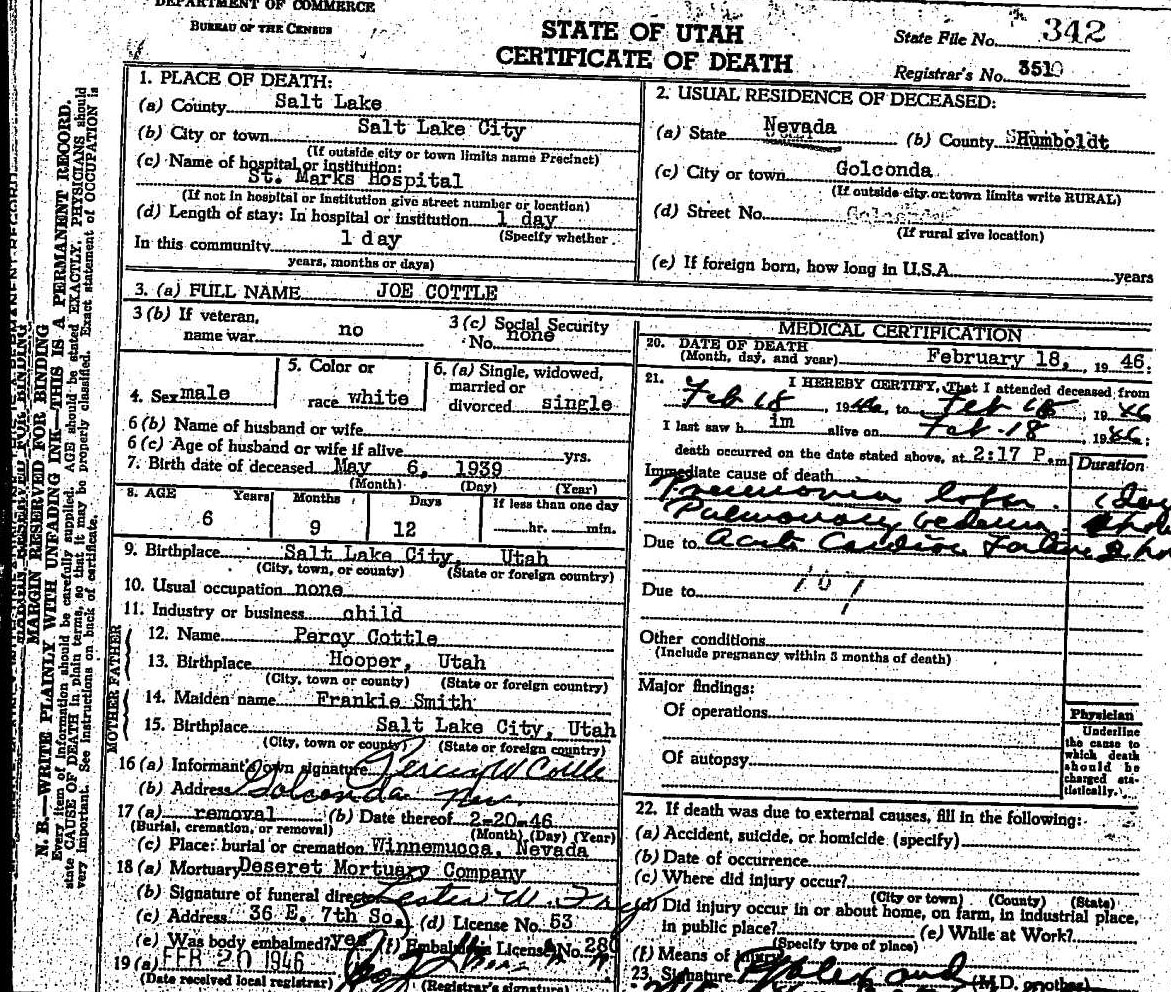 DEPARTMENT OF COMMERCE
BUREAU OF THE CENSUS
STATE OF UTAH
CERTIFICATE OF DEATH
State File No. 342
Registrar's No. 3510
MARGIN RESERVED FOR BINDING
N. B.—WRITE PLAINLY WITH UNFADING INK—THIS IS A PERMANENT RECORD.
Every item of information should be carefully supplied. AGE should be stated EXACTLY. PHYSICIANS should
state CAUSE OF DEATH in plain terms, so that it may be properly classified. Exact statement of OCCUPATION is
very important. See instructions on back of certificate.
1. PLACE OF DEATH:
(a) County Salt Lake
(b) City or town Salt Lake City
(If outside city or town limits name Precinct)
(c) Name of hospital or institution:
St. Marks Hospital
(If not in hospital or institution give street number or location)
(d) Length of stay: In hospital or institution 1 day
(Specify whether
In this community 1 day
years, months or days)
2. USUAL RESIDENCE OF DECEASED:
(a) State Nevada (b) County Humboldt
(c) City or town Golconda
(If outside city or town limits write RURAL)
(d) Street No. Golconda
(If rural give location)
(e) If foreign born, how long in U.S.A. years
3. (a) FULL NAME JOE COTTLE
3 (b) If veteran, name war no
3 (c) Social Security No. none
4. Sex male
5. Color or race white
6. (a) Single, widowed, married or divorced single
6 (b) Name of husband or wife
6 (c) Age of husband or wife if alive yrs.
7. Birth date of deceased May 6, 1939
(Month) (Day) (Year)
8. AGE Years Months Days If less than one day
6 9 12 hr. min.
9. Birthplace Salt Lake City, Utah
(City, town, or county) (State or foreign country)
10. Usual occupation none
11. Industry or business child
FATHER
12. Name Percy Cottle
13. Birthplace Hooper, Utah
(City, town or county) (State or foreign country)
MOTHER
14. Maiden name Frankie Smith
15. Birthplace Salt Lake City, Utah
(City, town or county) (State or foreign country)
16 (a) Informant's own signature Percy W Cottle
(b) Address Golconda Nev.
17 (a) removal (b) Date thereof 2-20-46
(Burial, cremation, or removal) (Month) (Day) (Year)
(c) Place: burial or cremation Winnemucca, Nevada
18 (a) Mortuary Deseret Mortuary Company
(b) Signature of funeral director Lester W.
(c) Address 36 E. 7th So. (d) License No. 53
(e) Was body embalmed? yes (f) Embalmer's License No. 280
19 (a) FEB 20 1946
(Date received local registrar) (Registrar's signature)
MEDICAL CERTIFICATION
20. DATE OF DEATH
(Month, day, and year) February 18, 1946.
21. I HEREBY CERTIFY, That I attended deceased from
Feb 18, 1946, to Feb 18 1946
I last saw him alive on Feb-18 1946;
death occurred on the date stated above, at 2:17 P.m.
Duration
Immediate cause of death
Pneumonia lobar. 1 Day
Pulmonary edema.
Due to Acute Cardiac Failure
Due to 107
Other conditions
(Include pregnancy within 3 months of death)
Major findings:
Of operations
Of autopsy
Physician
Underline
the cause to
which death
should be
charged sta-
tistically.
22. If death was due to external causes, fill in the following:
(a) Accident, suicide, or homicide (specify)
(b) Date of occurrence
(c) Where did injury occur?
(City or town) (County) (State)
(d) Did injury occur in or about home, on farm, in industrial place,
in public place? (e) While at Work?
(Specify type of place)
(f) Means of injury
23. Signature (M.D. or other)